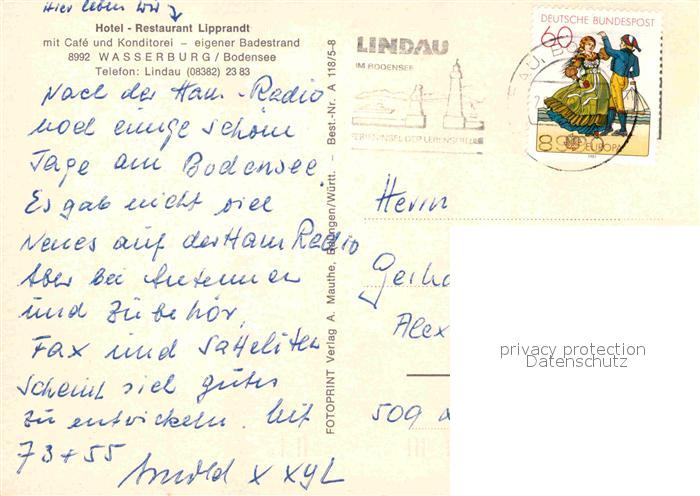 Hier leben wir
Hotel - Restaurant Lipprandt
mit Café und Konditorei – eigener Badestrand
8992 WASSERBURG / Bodensee
Telefon: Lindau (08382) 23 83
Nach der Ham-Radio
noch einige schöne
Tage am Bodensee.
Es gab nicht viel
Neues auf der Ham Radio
Aber bei Antennen
und Zubehör,
Fax und Satteliten
scheint sich gutes
zu entwickeln. Mit
73 + 55
Arnold x xyL
FOTOPRINT Verlag A. Mauthe, Württ. – Best.-Nr. A 118/5-8
LINDAU
IM BODENSEE
FERIENINSEL DER LEBENSFREUDE
DEUTSCHE BUNDESPOST
60
EUROPA
Herrn
Gerha
Alex
509
privacy protection
Datenschutz